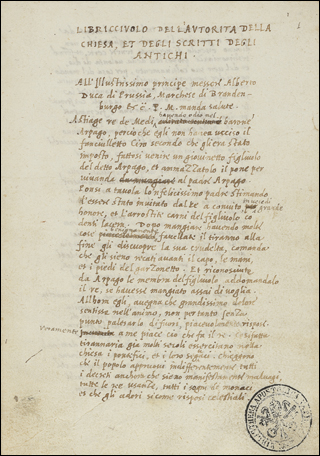 LIBRICCIVOLO DELL'AVTORITA DELLA
CHIESA, ET DEGLI SCRITTI DEGLI
ANTICHI
All'Illustrissimo principe messer Alberto
Duca di Prussia, Marchese di Branden-
burgo &c. P. M. manda salute.
Astiage re de Medi, barone
Arpago, percioche egli non havea ucciso il
fanciulletto Ciro secondo che gli era stato
imposto, fattosi venire un giovinetto figliuolo
del detto Arpago, et ammazzatolo il pone per
vivanda al padre Arpago
a tavola lo'nfelicissimo padre stimando
d'essere stato invitato dal Re a convito
honore, et l'arrostite carni del figliuolo co
denti lacera. Dopo mangiare, havendo molte
cose favellate il tiranno alla
fine gli discuopre la sua crudelta, comanda
che gli sieno recati avanti il capo, le mani,
et i piedi del garzonetto. Et riconosciute
da Arpago le membra del figliuolo, addomandalo
il re, se havesse mangiato assai di voglia.
Allhora egli, avegna che grandissimo dolore
sentisse nell'animo, non per tanto senza
punto palesarlo di fuori, piacevolmente rispose.
veramente a me piace cio che fa il re.
tirannaria gia molti secoli esercitano nella
chiesa i pontefici, et i loro seguaci.
che il popolo appruovi indifferentemente tutti
i decreti anchora che sieno manifestamente malvagi,
tutte le usanze, tutti i sogni de monaci
et che gli adori si come risposi celestiali.